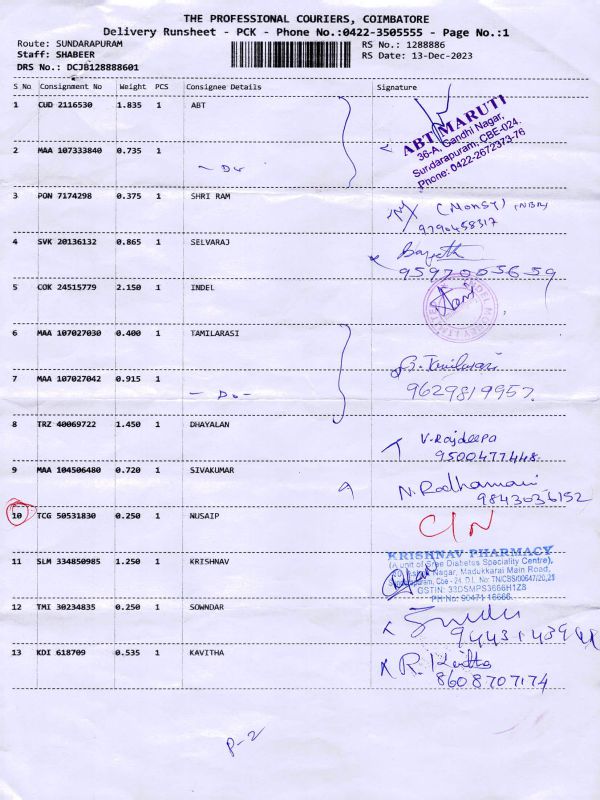 THE PROFESSIONAL COURIERS, COIMBATORE
Delivery Runsheet - PCK - Phone No.:0422-3505555 - Page No.:1
Route: SUNDARAPURAM RS No.: 1288886
Staff: SHABEER RS Date: 13-Dec-2023
DRS No.: DCJB128888601
S No Consignment No Weight PCS Consignee Details Signature
1 CUD 2116530 1.835 1 ABT
ABT MARUTI
36-A, Gandhi Nagar,
Sundarapuram, CBE-024.
Phone: 0422-2672373-76
2 MAA 107333840 0.735 1
- Do -
3 PON 7174298 0.375 1 SHRI RAM
9790458317
4 SVK 20136132 0.865 1 SELVARAJ
9597005659
5 COK 24515779 2.150 1 INDEL
6 MAA 107027030 0.400 1 TAMILARASI
7 MAA 107027042 0.915 1
- Do -
9629819957
8 TRZ 40069722 1.450 1 DHAYALAN
V. Rajdeepa
9500477448
9 MAA 104506480 0.720 1 SIVAKUMAR
N. Radhamani
9843036152
10 TCG 50531830 0.250 1 NUSAIP
C/N
11 SLM 334850985 1.250 1 KRISHNAV
KRISHNAV PHARMACY
(A unit of Sree Diabetes Speciality Centre),
Nagar, Madukkarai Main Road,
Cbe - 24. D.L. No: TN/CBS/00647/20,21
GSTIN: 33DSMPS3666H1Z8
PH: 90471 16666
12 TMI 30234835 0.250 1 SOWNDAR
13 KDI 618709 0.535 1 KAVITHA
8608707174
P-2